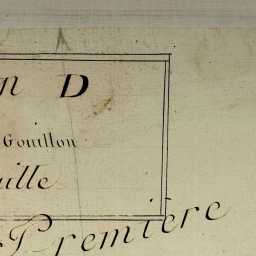 n D
Gouillon
uille
Première